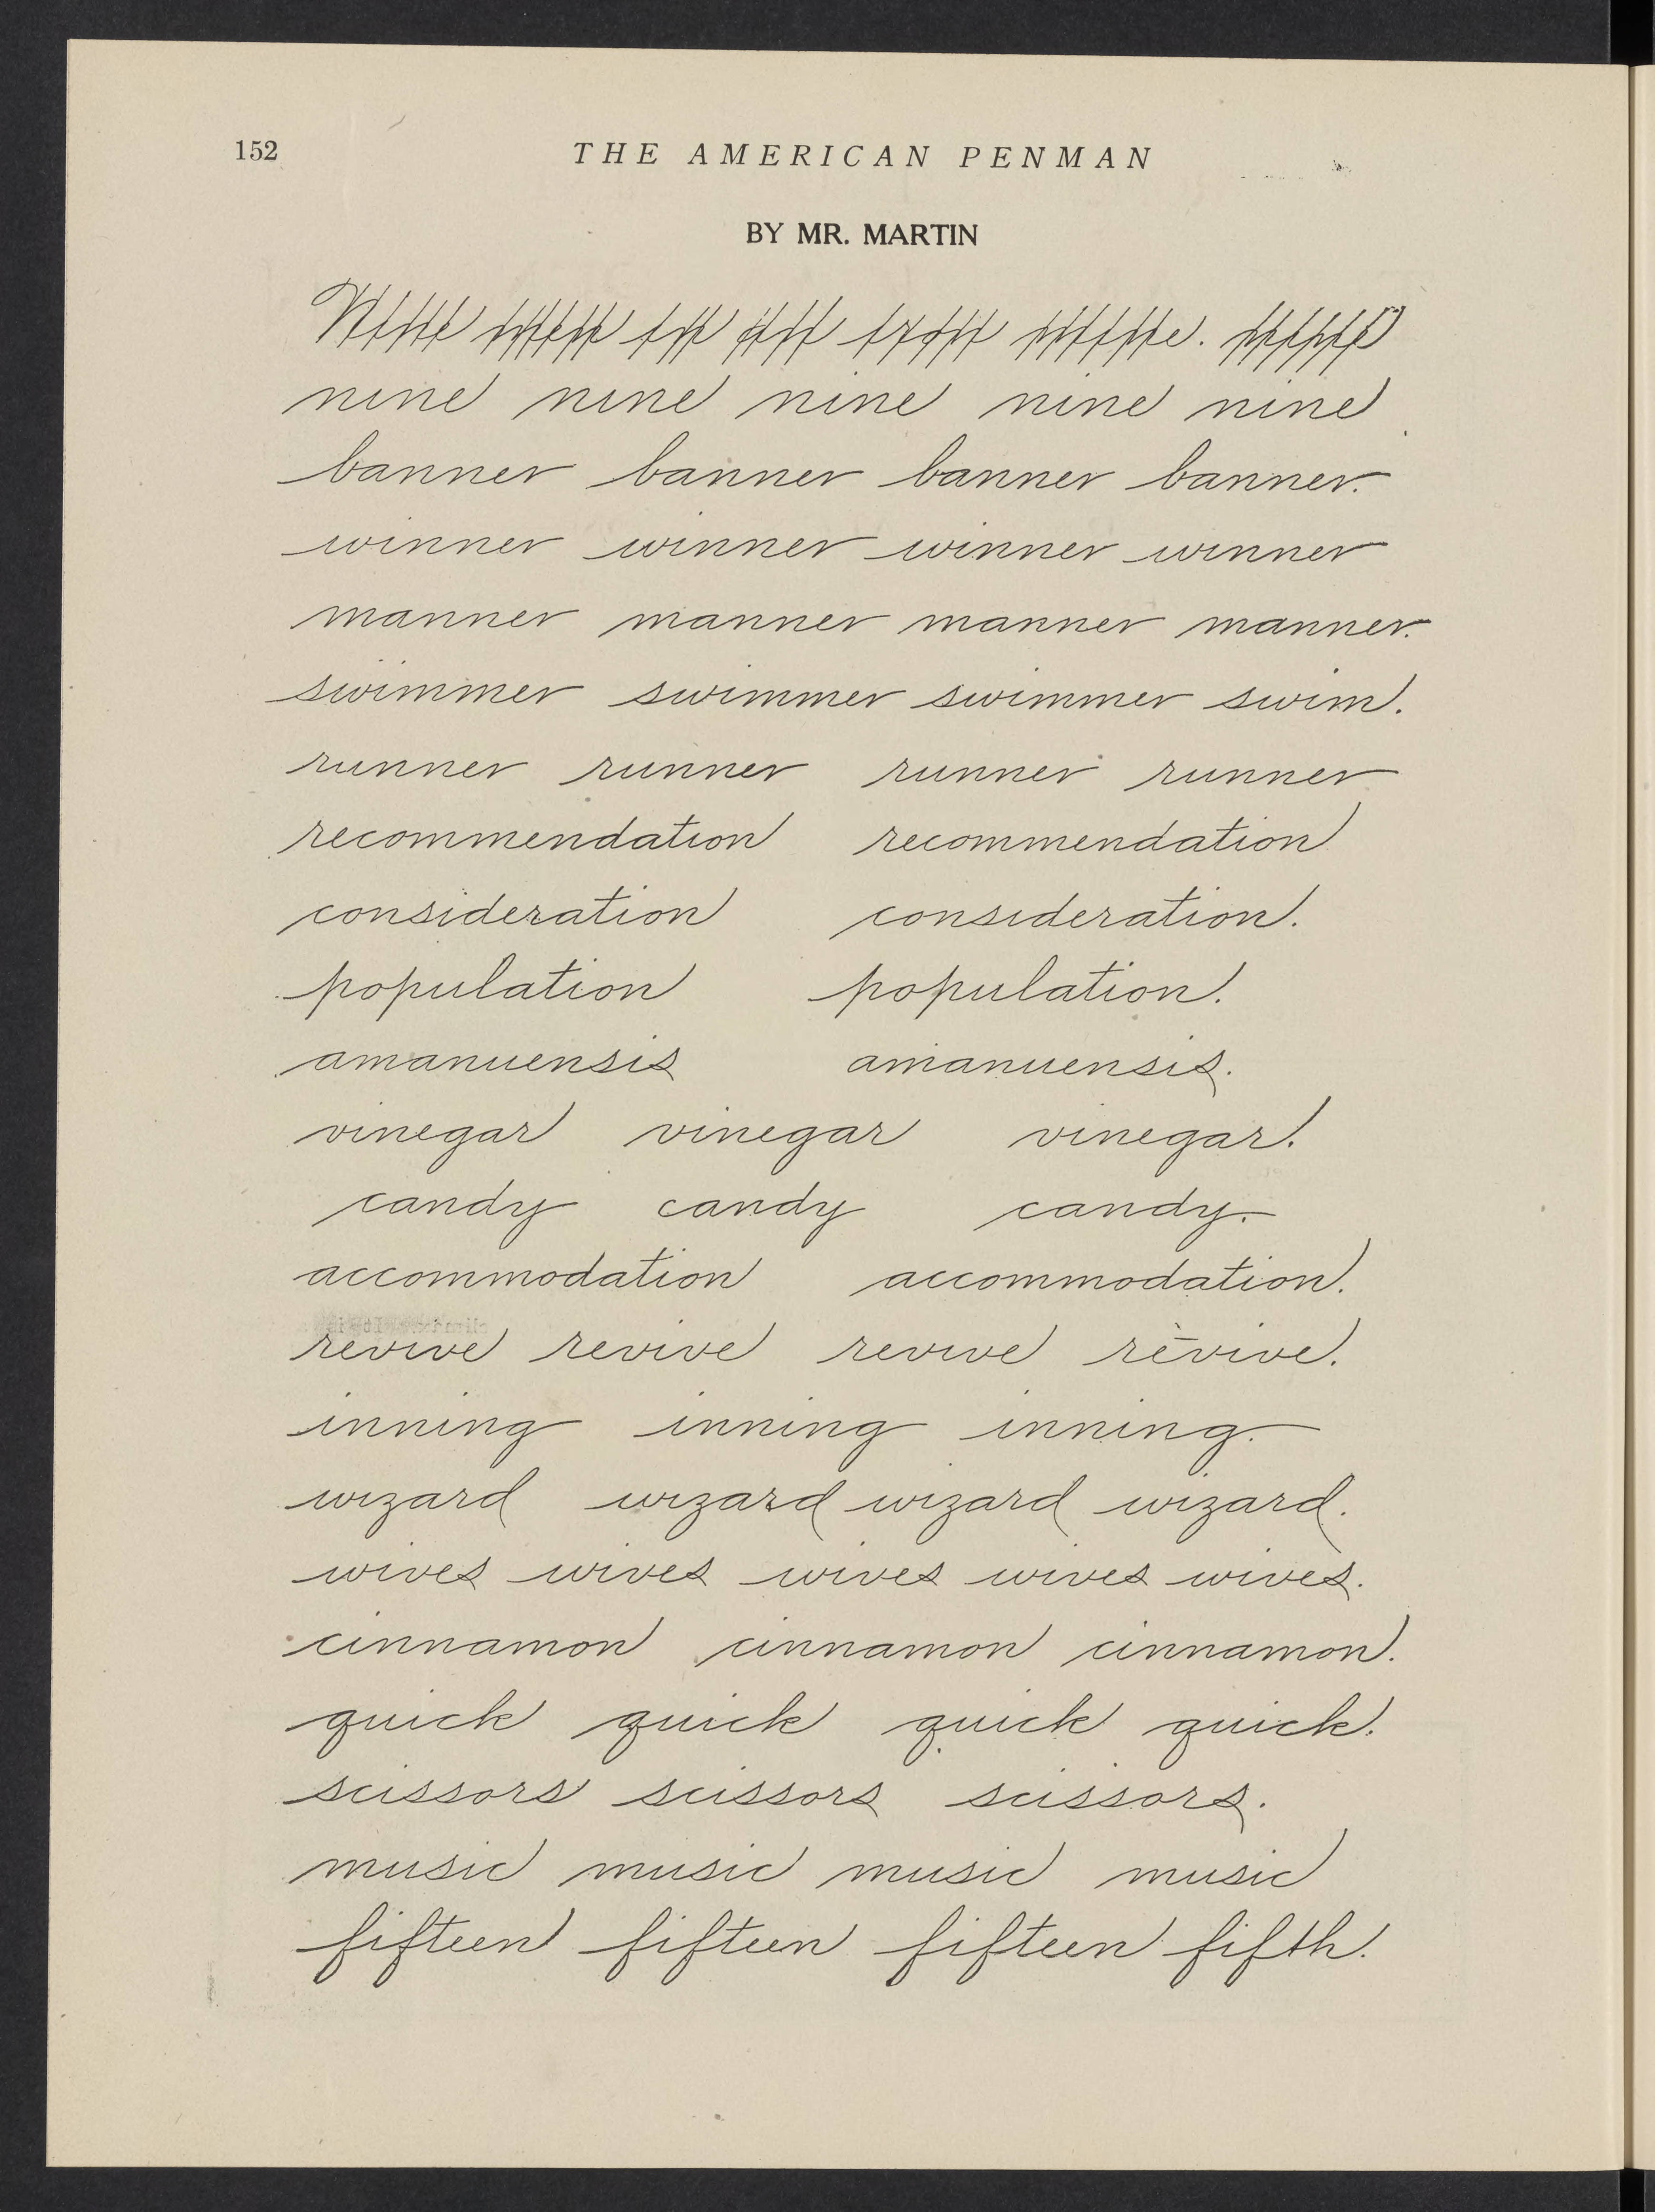 152
THE AMERICAN PENMAN
BY MR. MARTIN
nine nine nine nine nine
banner banner banner banner.
winner winner winner winner
manner manner manner manner.
swimmer swimmer swimmer swim.
runner runner runner runner
recommendation recommendation
consideration consideration.
population population.
amanuensis amanuensis.
vinegar vinegar vinegar.
candy candy candy.
accommodation accommodation.
revive revive revive revive.
inning inning inning.
wizard wizard wizard wizard.
wives wives wives wives wives.
cinnamon cinnamon cinnamon.
quick quick quick quick.
scissors scissors scissors.
music music music music
fifteen fifteen fifteen fifth.